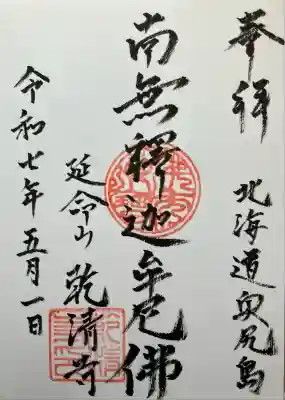 奉拝
北海道奥尻島
南無釋迦牟尼佛
延命山
乾清寺
令和七年五月一日